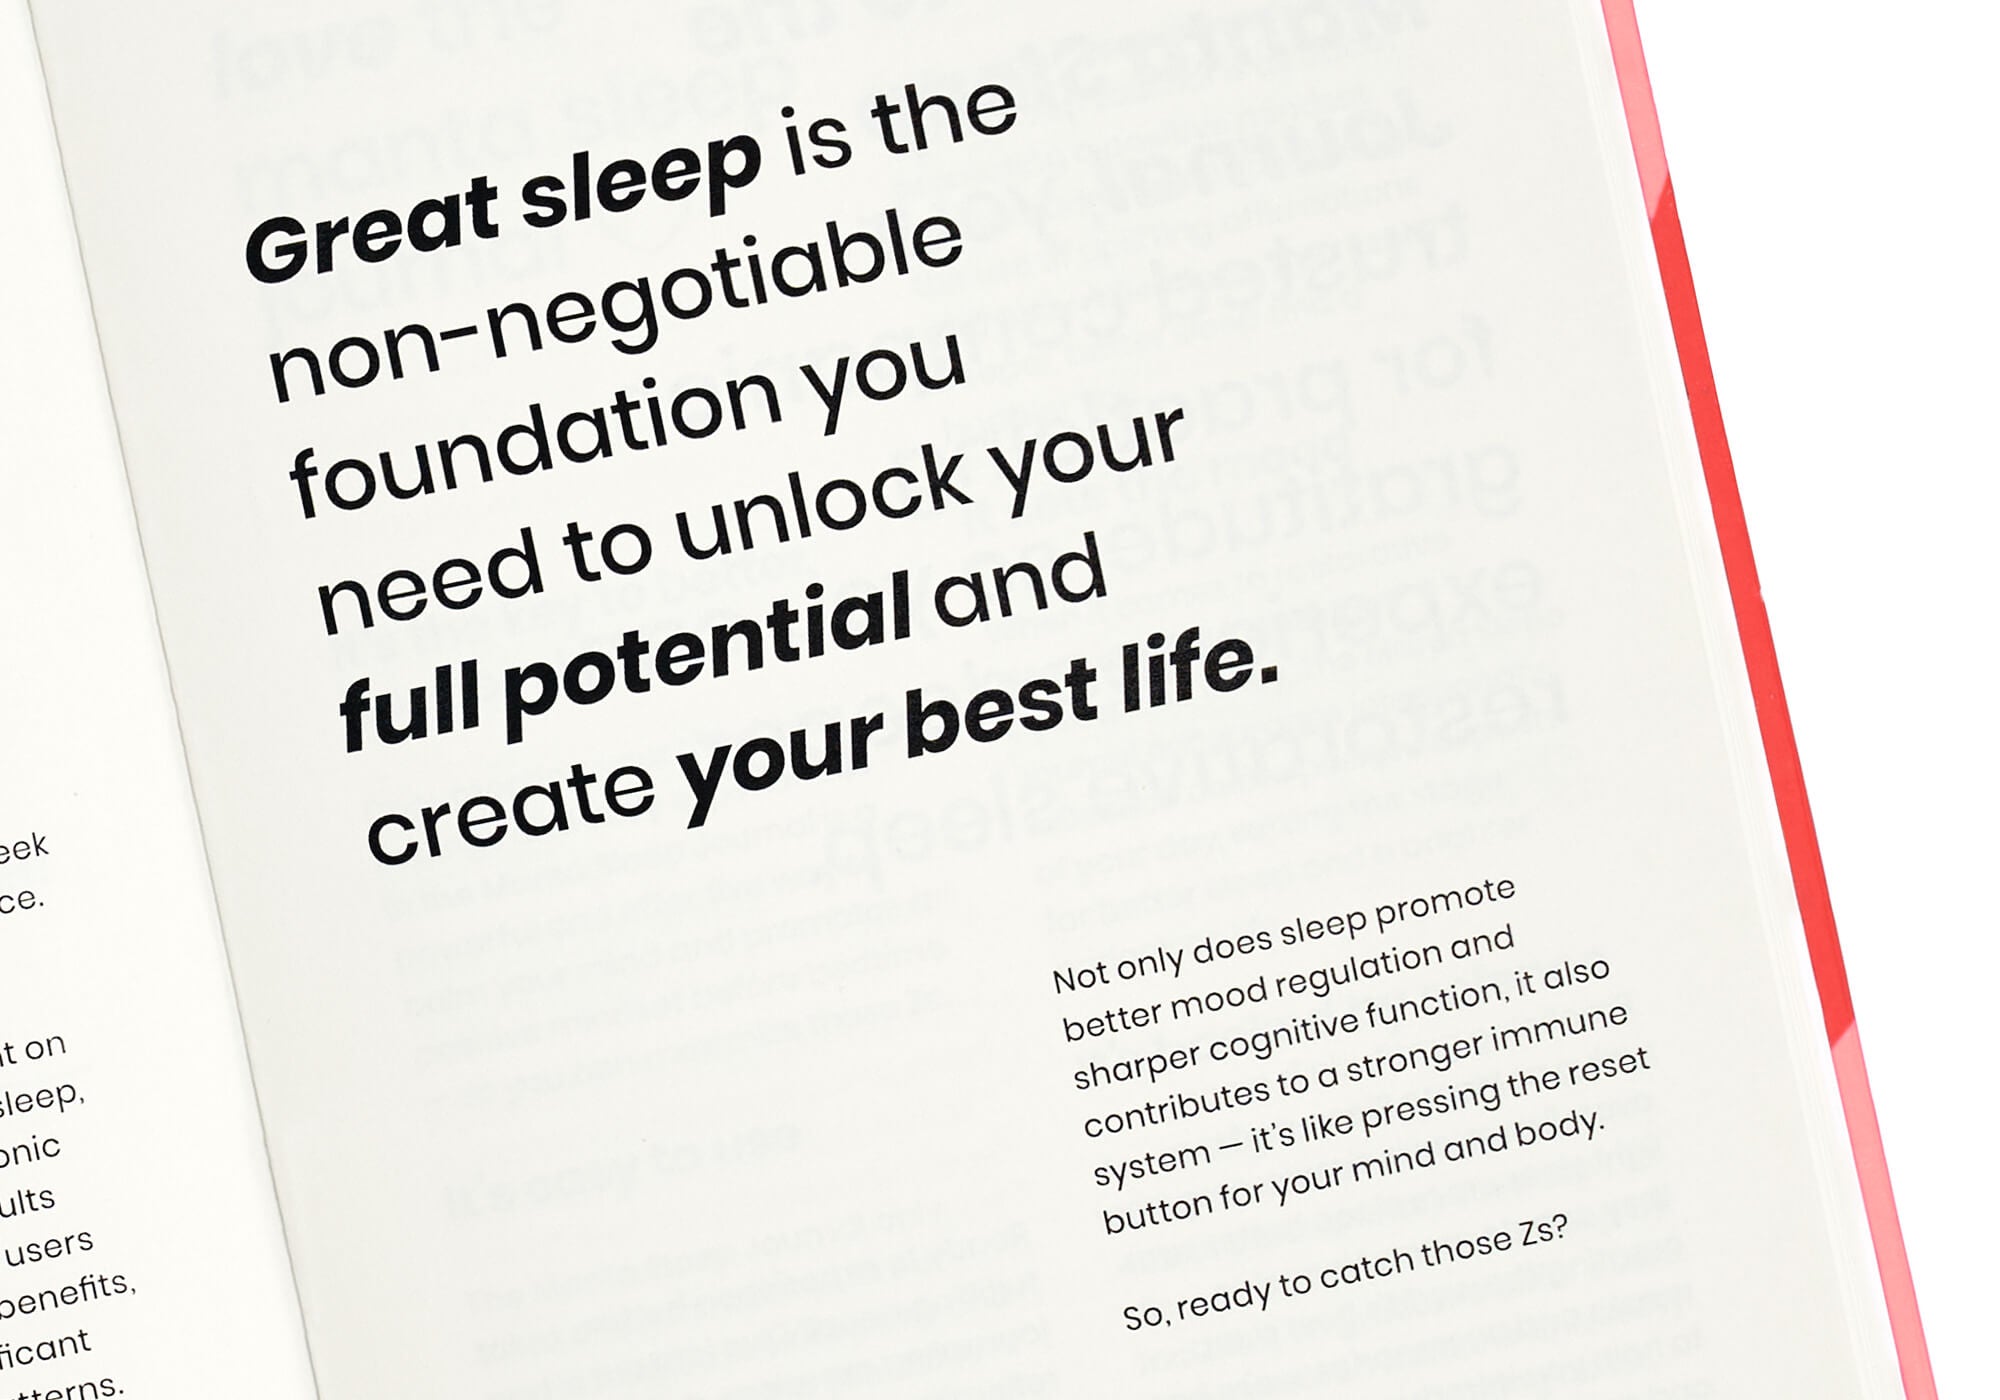 eek
ce.
t on
sleep,
onic
ults
users
benefits,
ficant
tterns.
Great sleep is the
non-negotiable
foundation you
need to unlock your
full potential and
create your best life.
Not only does sleep promote
better mood regulation and
sharper cognitive function, it also
contributes to a stronger immune
system – it's like pressing the reset
button for your mind and body.
So, ready to catch those Zs?